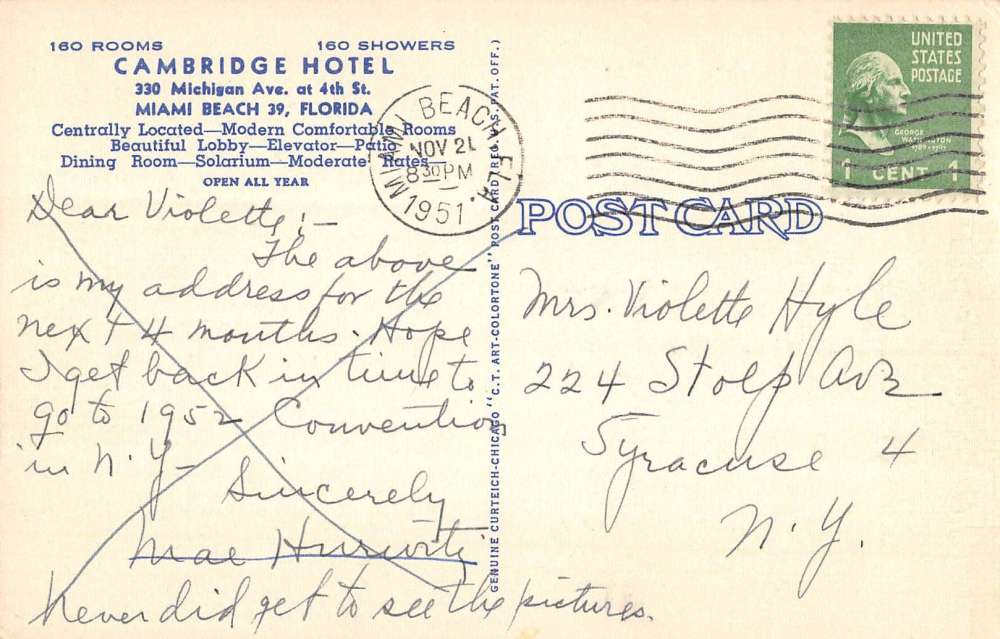 160 ROOMS 160 SHOWERS
CAMBRIDGE HOTEL
330 Michigan Ave. at 4th St.
MIAMI BEACH 39, FLORIDA
Centrally Located—Modern Comfortable Rooms
Beautiful Lobby—Elevator—Patio
Dining Room—Solarium—Moderate Rates—
OPEN ALL YEAR
Dear Violette:—
The above
is my address for the
next 4 months. Hope
I get back in time to
go to 1952 Convention
in N.Y—
Sincerely
Mae
Never did get to see the pictures.
GENUINE CURTEICH-CHICAGO "C.T. ART-COLORTONE" POST CARD (REG. U.S. PAT. OFF.)
MIAMI BEACH, FLA.
NOV 21
8 30 PM
1951
UNITED
STATES
POSTAGE
GEORGE
WASHINGTON
1 CENT 1
POST CARD
Mrs. Violette Hyle
224 Stolp Ave
Syracuse 4
N.Y.